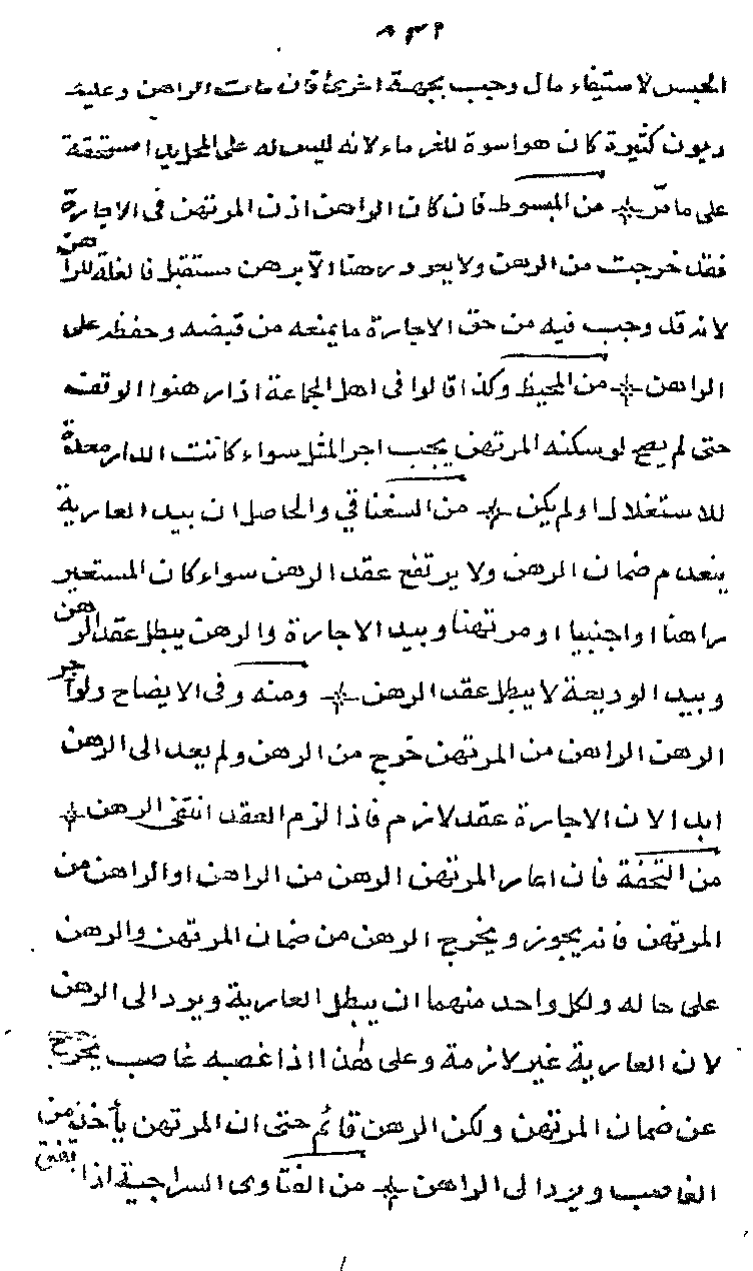 ٨٣٩
الحبس لاستيفاء مال وجب بجهة اخرى فان مات الراهن وعليه
ديون كثيرة كان هو اسوة للغرماء لانه ليس له على المحل يد مستحقة
على ما مر من المبسوط فان كان الراهن اذن المرتهن فى الاجارة
فقد خرجت من الرهن ولا يعود رهنا الا برهن مستقبل فالغلة للراهن
لانه قد وجب فيه من حق الاجارة ما يمنعه من قبضه وحفظه على
الراهن من المحيط وكذا قالوا فى اهل الجماعة اذا رهنوا الوقف
حتى لم يصح لو سكنه المرتهن يجب اجر المثل سواء كانت الدار معدة
للاستغلال او لم يكن من السغناقي والحاصل ان بيد العارية
ينعدم ضمان الرهن ولا يرتفع عقد الرهن سواء كان المستعير
راهنا او اجنبيا او مرتهنا وبيد الاجارة والرهن يبطل عقد الرهن
وبيد الوديعة لا يبطل عقد الرهن ومنه وفى الايضاح ولو آجر
الرهن الراهن من المرتهن خرج من الرهن ولم يعد الى الرهن
ابدا لان الاجارة عقد لازم فاذا لزم العقد انتفى الرهن
من التحفة فان اعار المرتهن الرهن من الراهن او الراهن من
المرتهن فانه يجوز ويخرج الرهن من ضمان المرتهن والرهن
على حاله ولكل واحد منهما ان يبطل العارية ويرد الى الرهن
لان العارية غير لازمة وعلى هذا اذا غصبه غاصب يخرج
عن ضمان المرتهن ولكن الرهن قائم حتى ان المرتهن يأخذه من
الغاصب ويرد الى الراهن من الفتاوى السراجية اذا